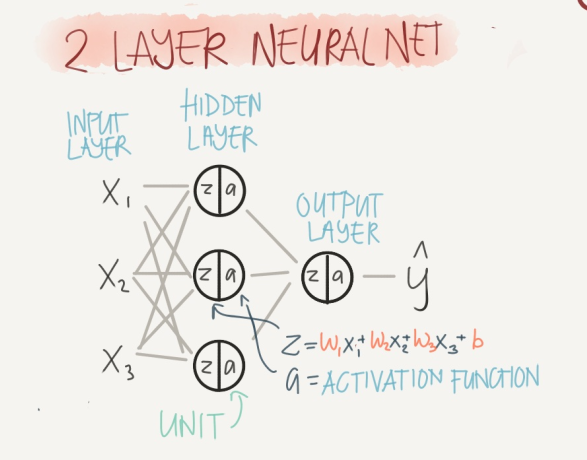 2 LAYER NEURAL NET
INPUT
LAYER
HIDDEN
LAYER
X₁
z a
OUTPUT
LAYER
X₂
z a
z a
ŷ
X₃
z a
z = w₁x₁ + w₂x₂ + w₃x₃ + b
a = ACTIVATION FUNCTION
UNIT